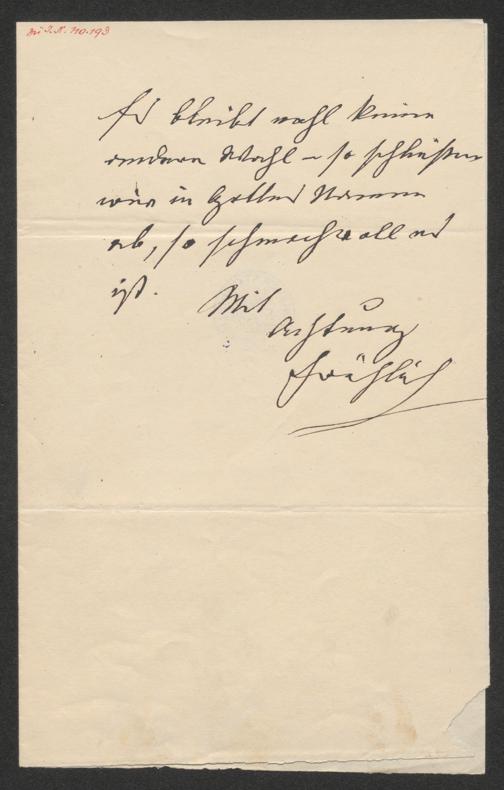 zu I.N. 110.193
Es bleibt wohl keine
andere Wahl – so schließen
wir in Gottes Namen
ab, so schmachvoll es
ist.
Mit
Achtung
Fröhlich